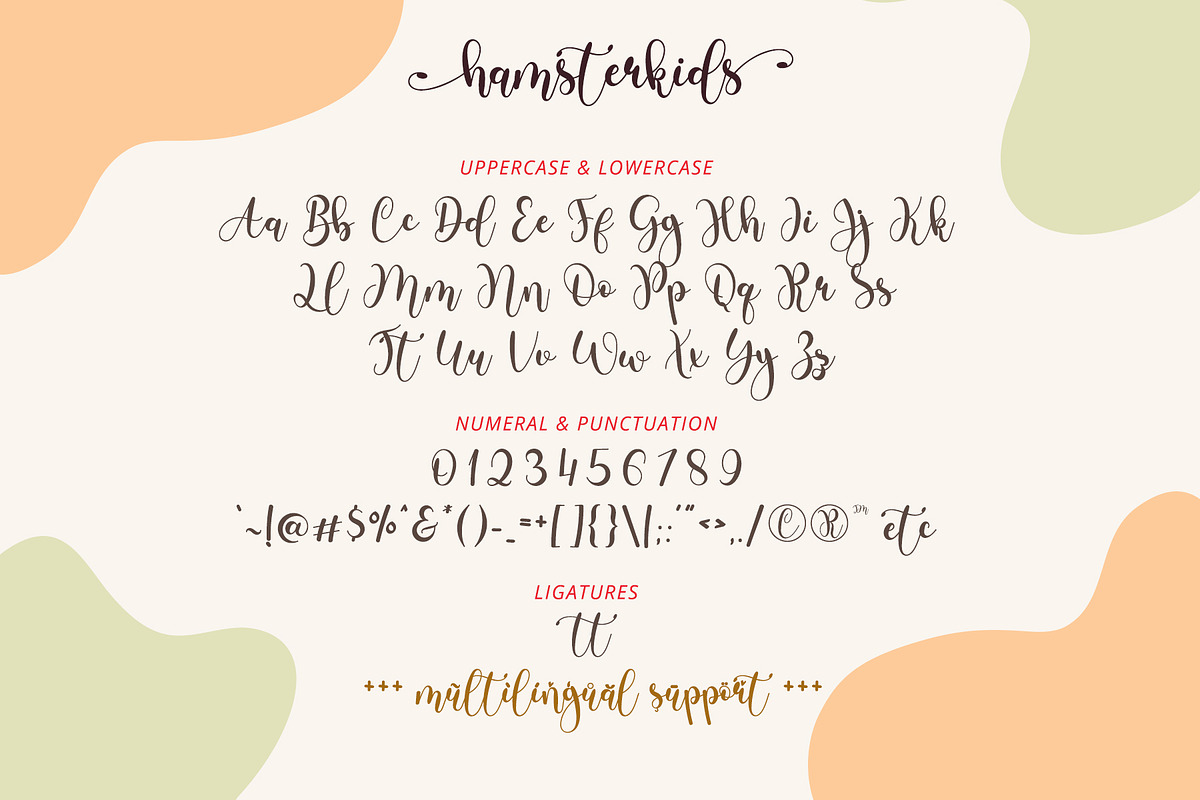 hamsterkids
UPPERCASE & LOWERCASE
Aa Bb Cc Dd Ee Ff Gg Hh Ii Jj Kk
Ll Mm Nn Oo Pp Qq Rr Ss
Tt Uu Vv Ww Xx Yy Zz
NUMERAL & PUNCTUATION
0 1 2 3 4 5 6 7 8 9
`~!@#$%^&*()-_=+[]{}\|;:'"<>,./©®™ etc
LIGATURES
tt
+++ mũltìlíńģůăl şūppöřt +++